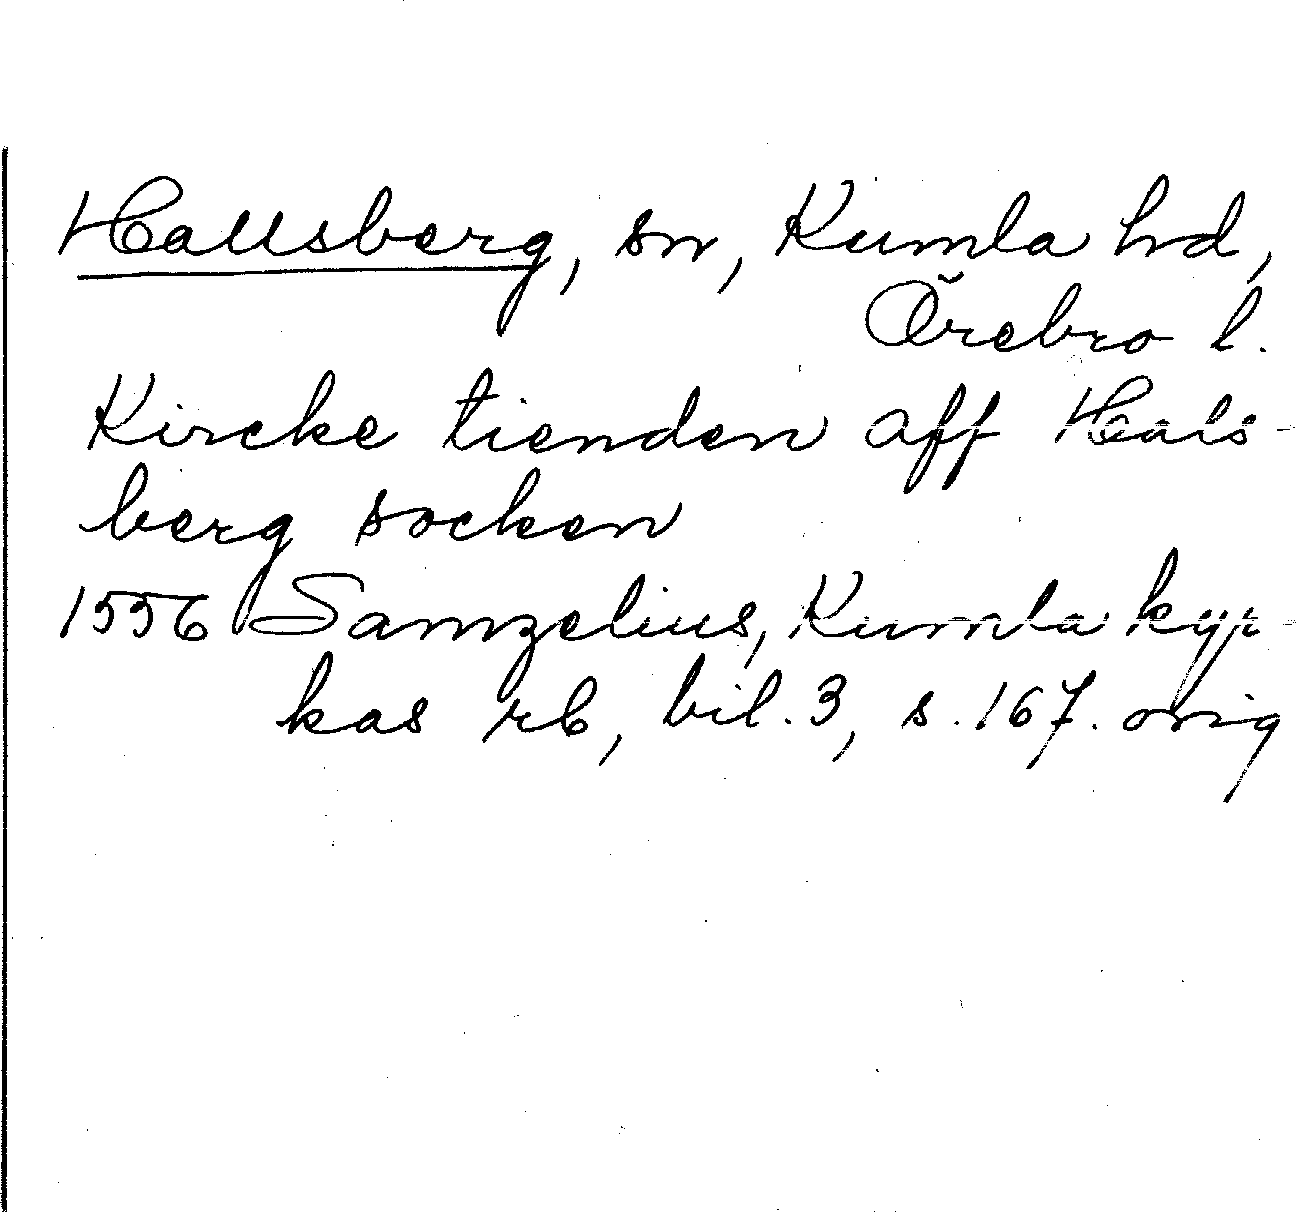 Hallsberg, sn, Kumla hd,
Örebro l.
Kircke tienden aff Hals-
berg socken
1556 Samzelius, Kumla kyr-
kas rb, bil. 3, s. 167. orig